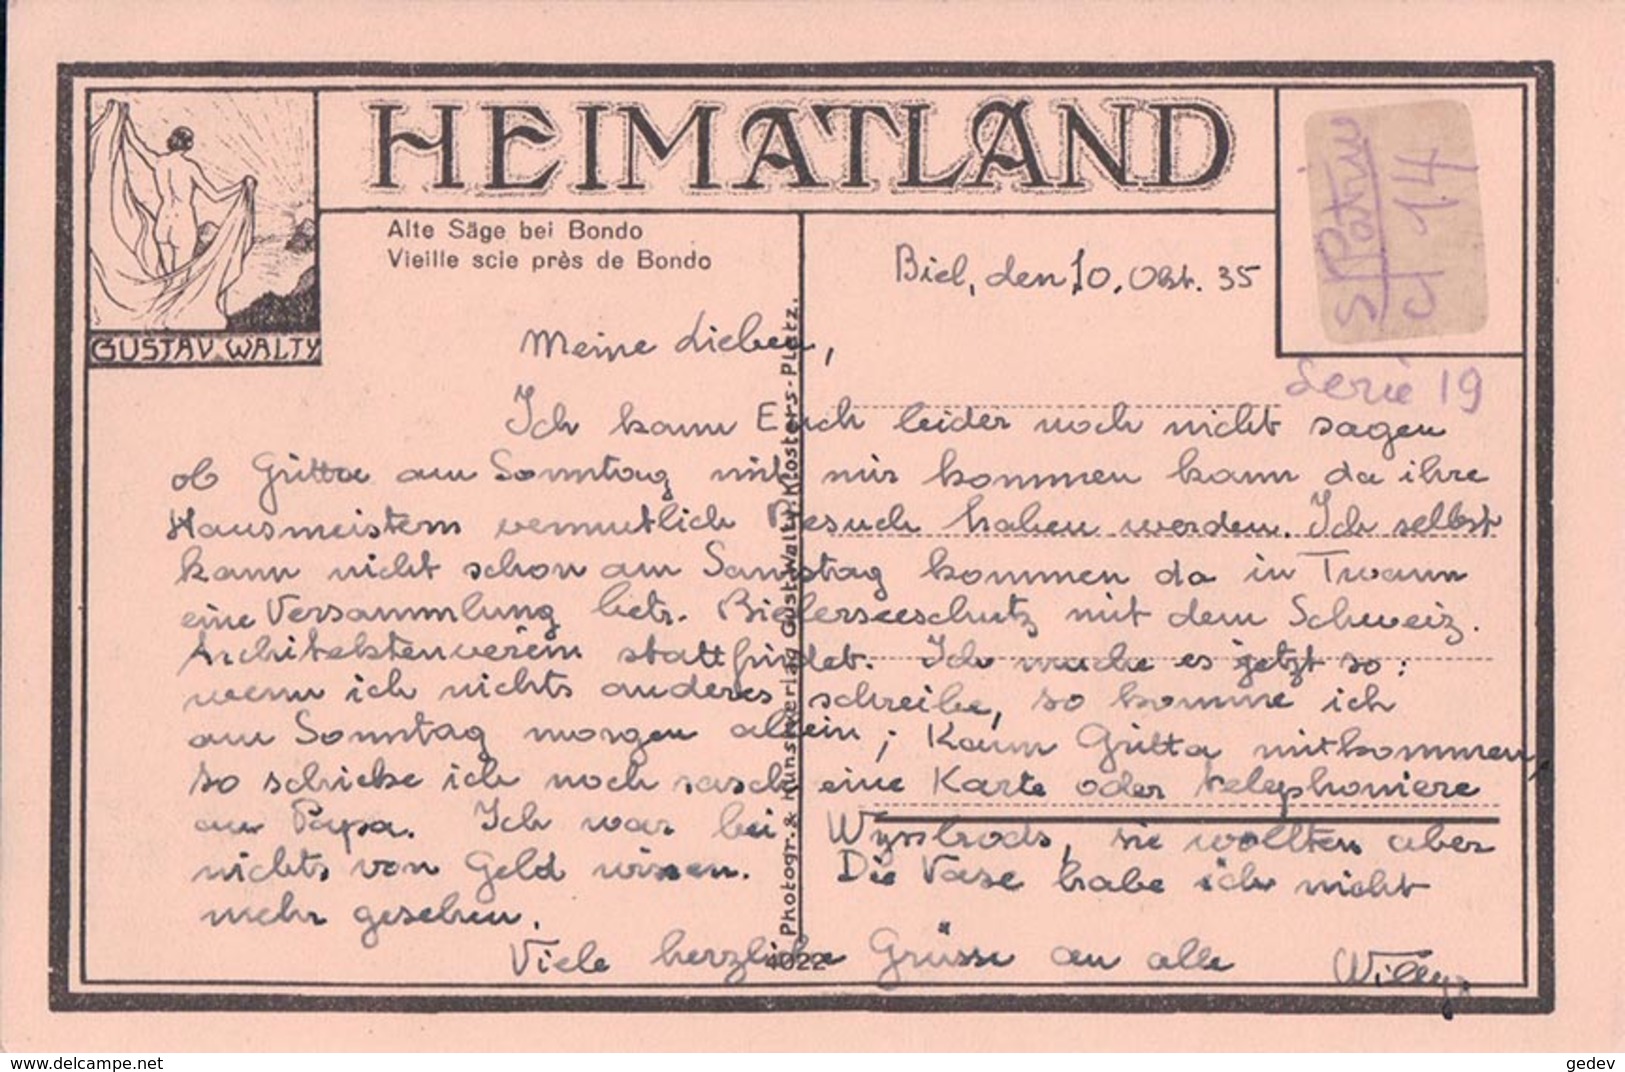 HEIMATLAND
GUSTAV WALTY
Alte Säge bei Bondo
Vieille scie près de Bondo
Photogr. & Kunstverlag Gust. Walty, Klosters-Platz.
4022
Serie 19
Biel, den 10. Okt. 35
Meine Lieben,
Ich kann Euch leider noch nicht sagen
ob Gritta am Sonntag mit mir kommen kann da ihre
Hausmeistern vermutlich Besuch haben werden. Ich selbst
kann nicht schon am Samstag kommen da in Twann
eine Versammlung betr. Bielerseeschutz mit dem Schweiz.
Architektenverein stattfindet. Ich mache es jetzt so:
wenn ich nichts anderes schreibe, so komme ich
am Sonntag morgen allein; Kann Gritta mitkommen,
so schicke ich noch rasch eine Karte oder telephoniere
an Papa. Ich war bei Wyssbrods, sie wollten aber
nichts von Geld wissen. Die Vase habe ich nicht
mehr gesehen.
Viele herzliche Grüsse an alle Willy
www.delcampe.net
gedev